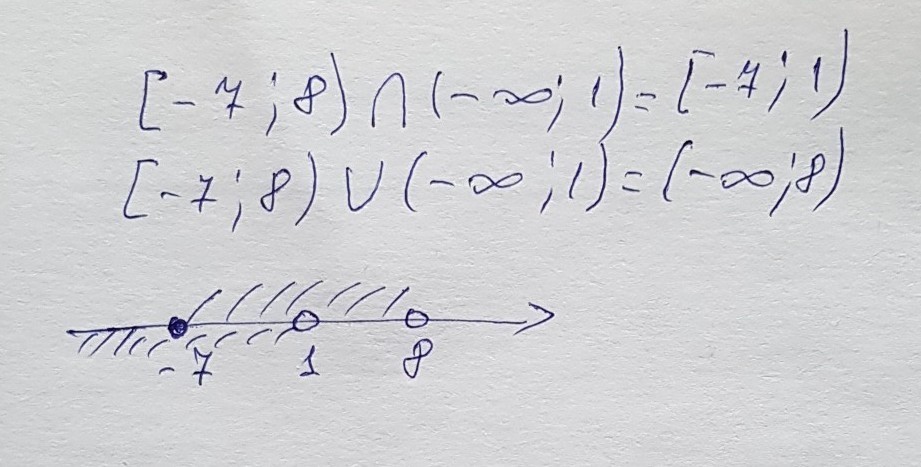 [-7;8)∩(-∞;1)=[-7;1)
[-7;8)∪(-∞;1)=(-∞;8)
-7 1 8